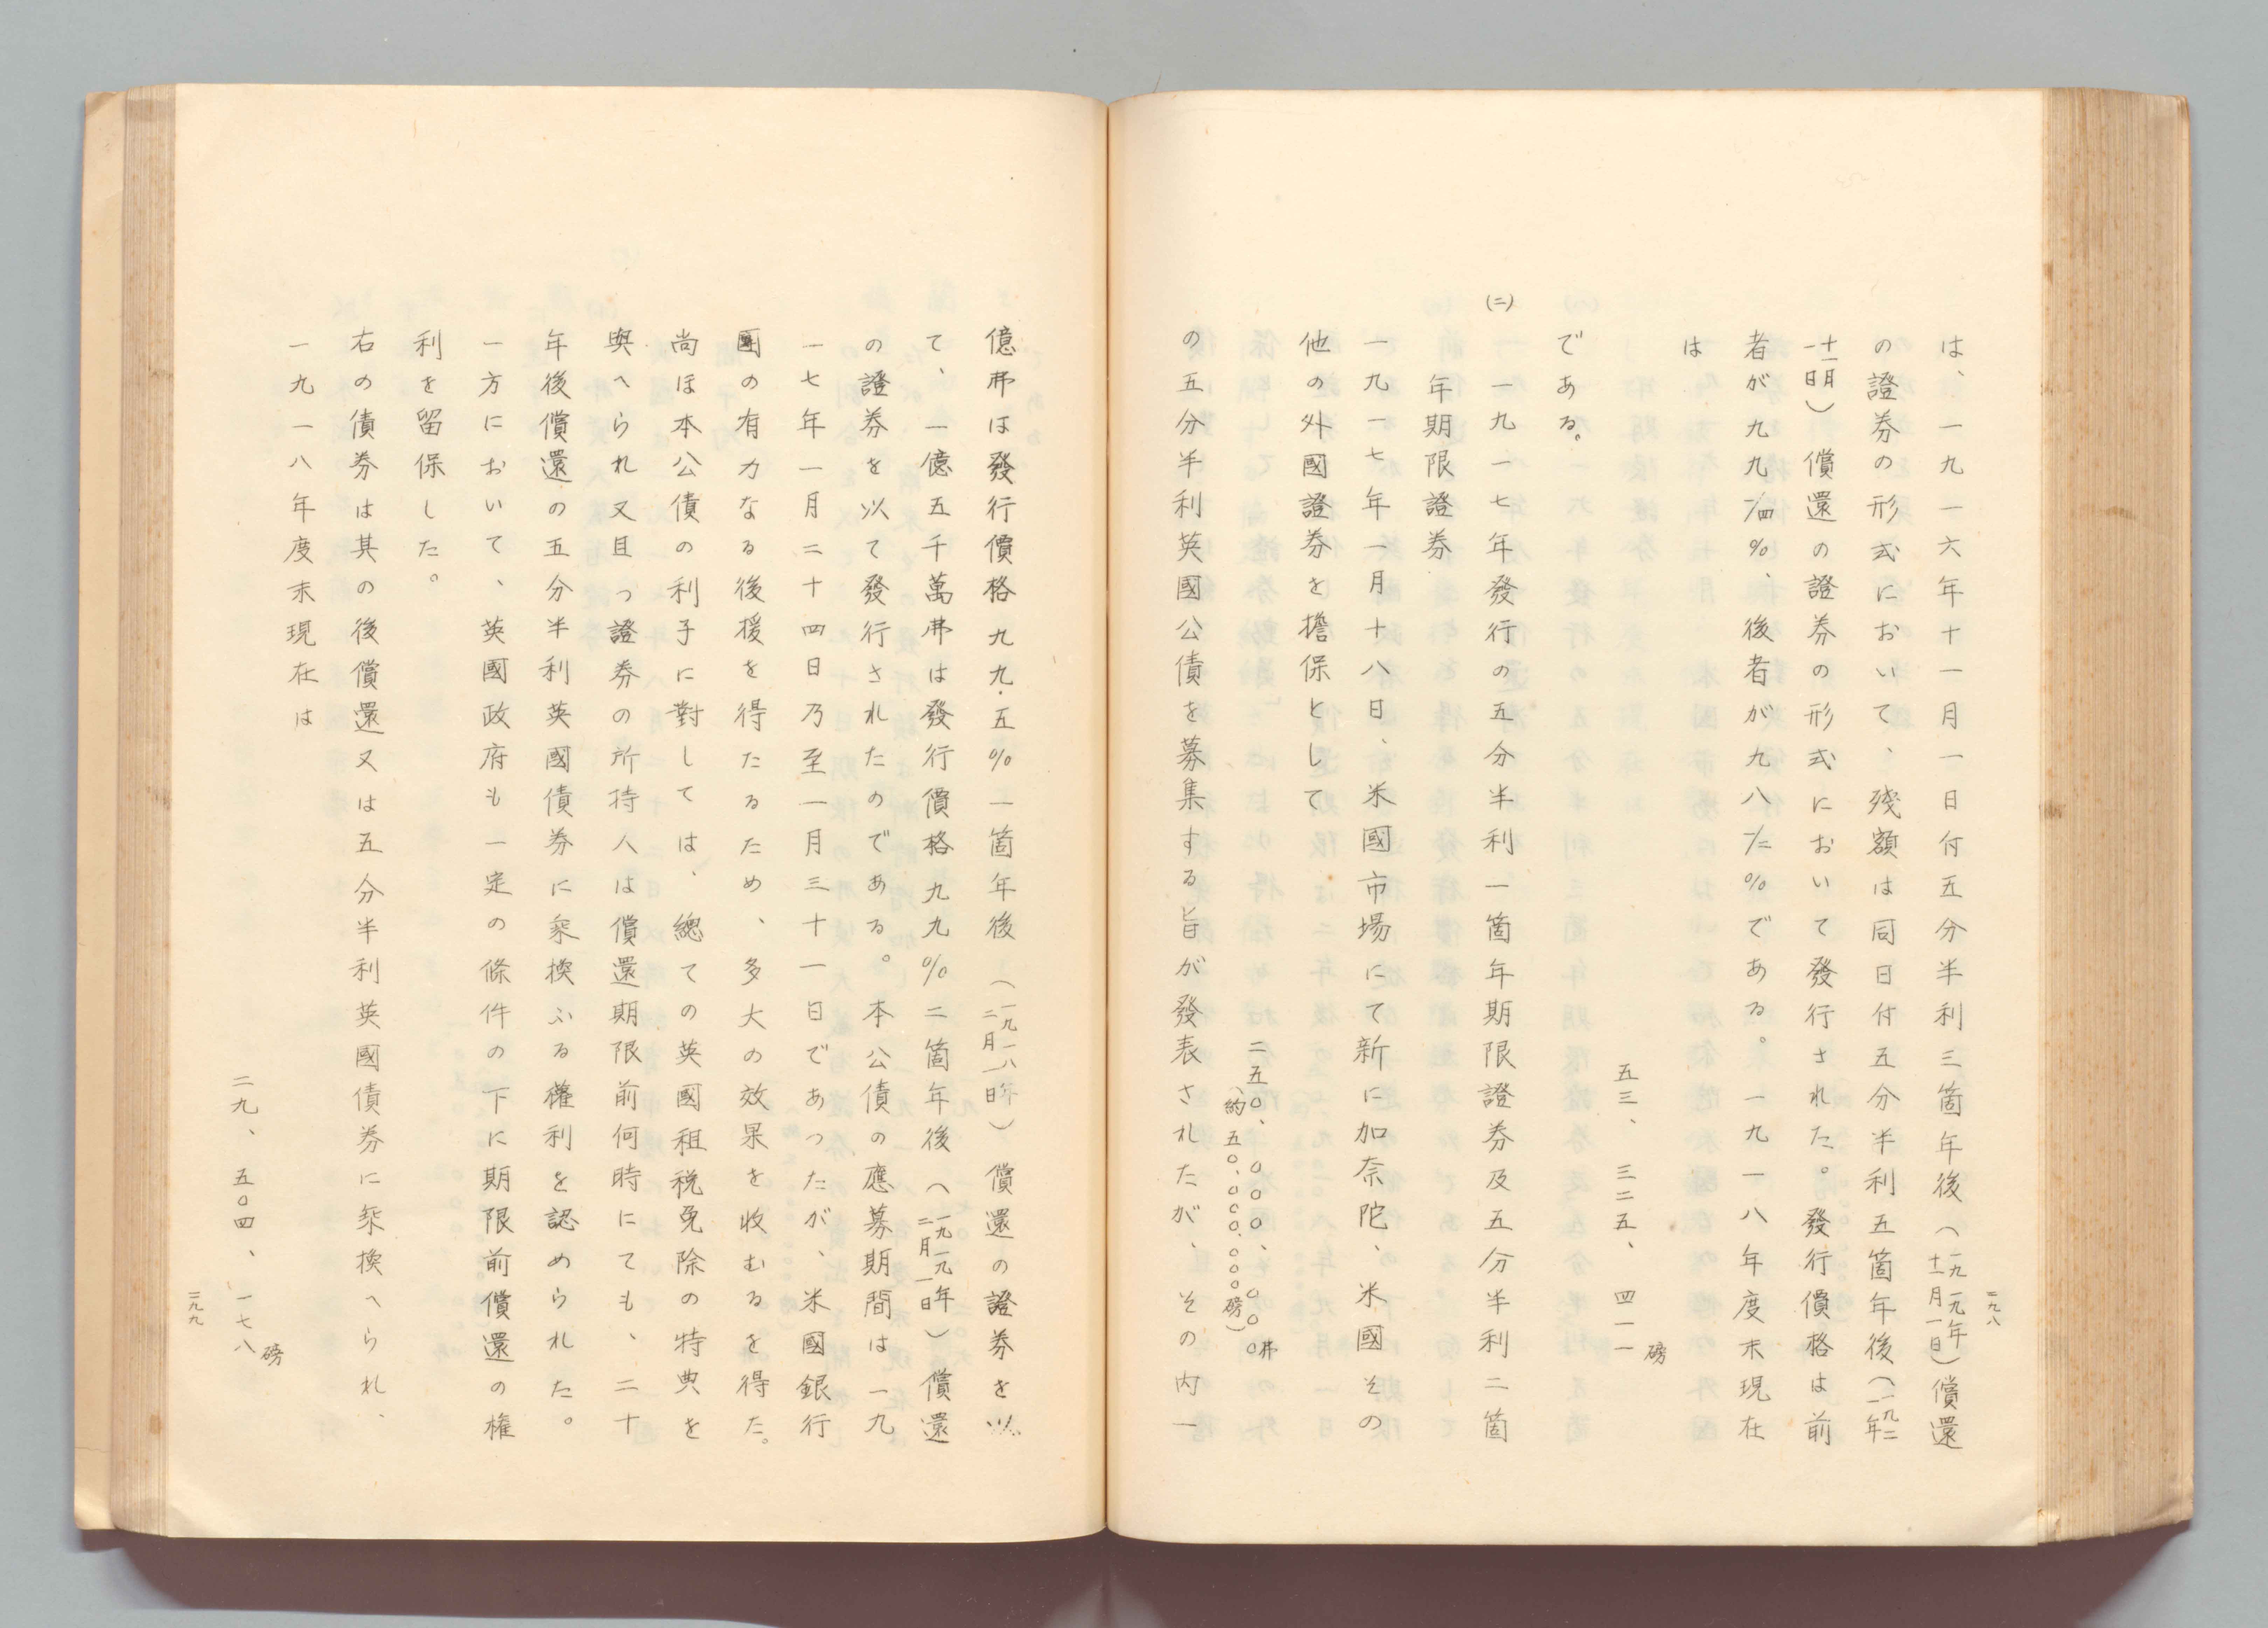 二九八
は、一九一六年十一月一日付五分半利三箇年後（一九一九年十一月一日）償還
の證券の形式において、殘額は同日付五分半利五箇年後（一九二一年
十一月一日）償還の證券の形式において發行された。發行價格は前
者が九九 1/四％、後者が九八 1/二％である。一九一八年度末現在
は
五三、三二五、四一一磅
である。
(二) 一九一七年發行の五分半利一箇年期限證券及五分半利二箇
年期限證券
一九一七年一月十八日、米國市場にて新に加奈陀、米國その
他の外國證券を擔保として
二五〇、〇〇〇、〇〇〇弗
（約五〇、〇〇〇、〇〇〇磅）
の五分半利英國公債を募集する旨が發表されたが、その内一
億弗は發行價格九九・五％一箇年後（一九一八年二月一日）償還の證券を以
て、一億五千萬弗は發行價格九九％二箇年後（一九一九年二月一日）償還
の證券を以て發行されたのである。本公債の應募期間は一九
一七年一月二十四日乃至一月三十一日であつたが、米國銀行
團の有力なる後援を得たるため、多大の效果を收むるを得た。
尚ほ本公債の利子に對しては、總ての英國租税免除の特典を
與へられ又且つ證券の所持人は償還期限前何時にても、二十
年後償還の五分半利英國債券に乘換ふる權利を認められた。
一方において、英國政府も一定の條件の下に期限前償還の權
利を留保した。
右の債券は其の後償還又は五分半利英國債券に乘換へられ、
一九一八年度末現在は
二九、五〇四、一七八磅
二九九